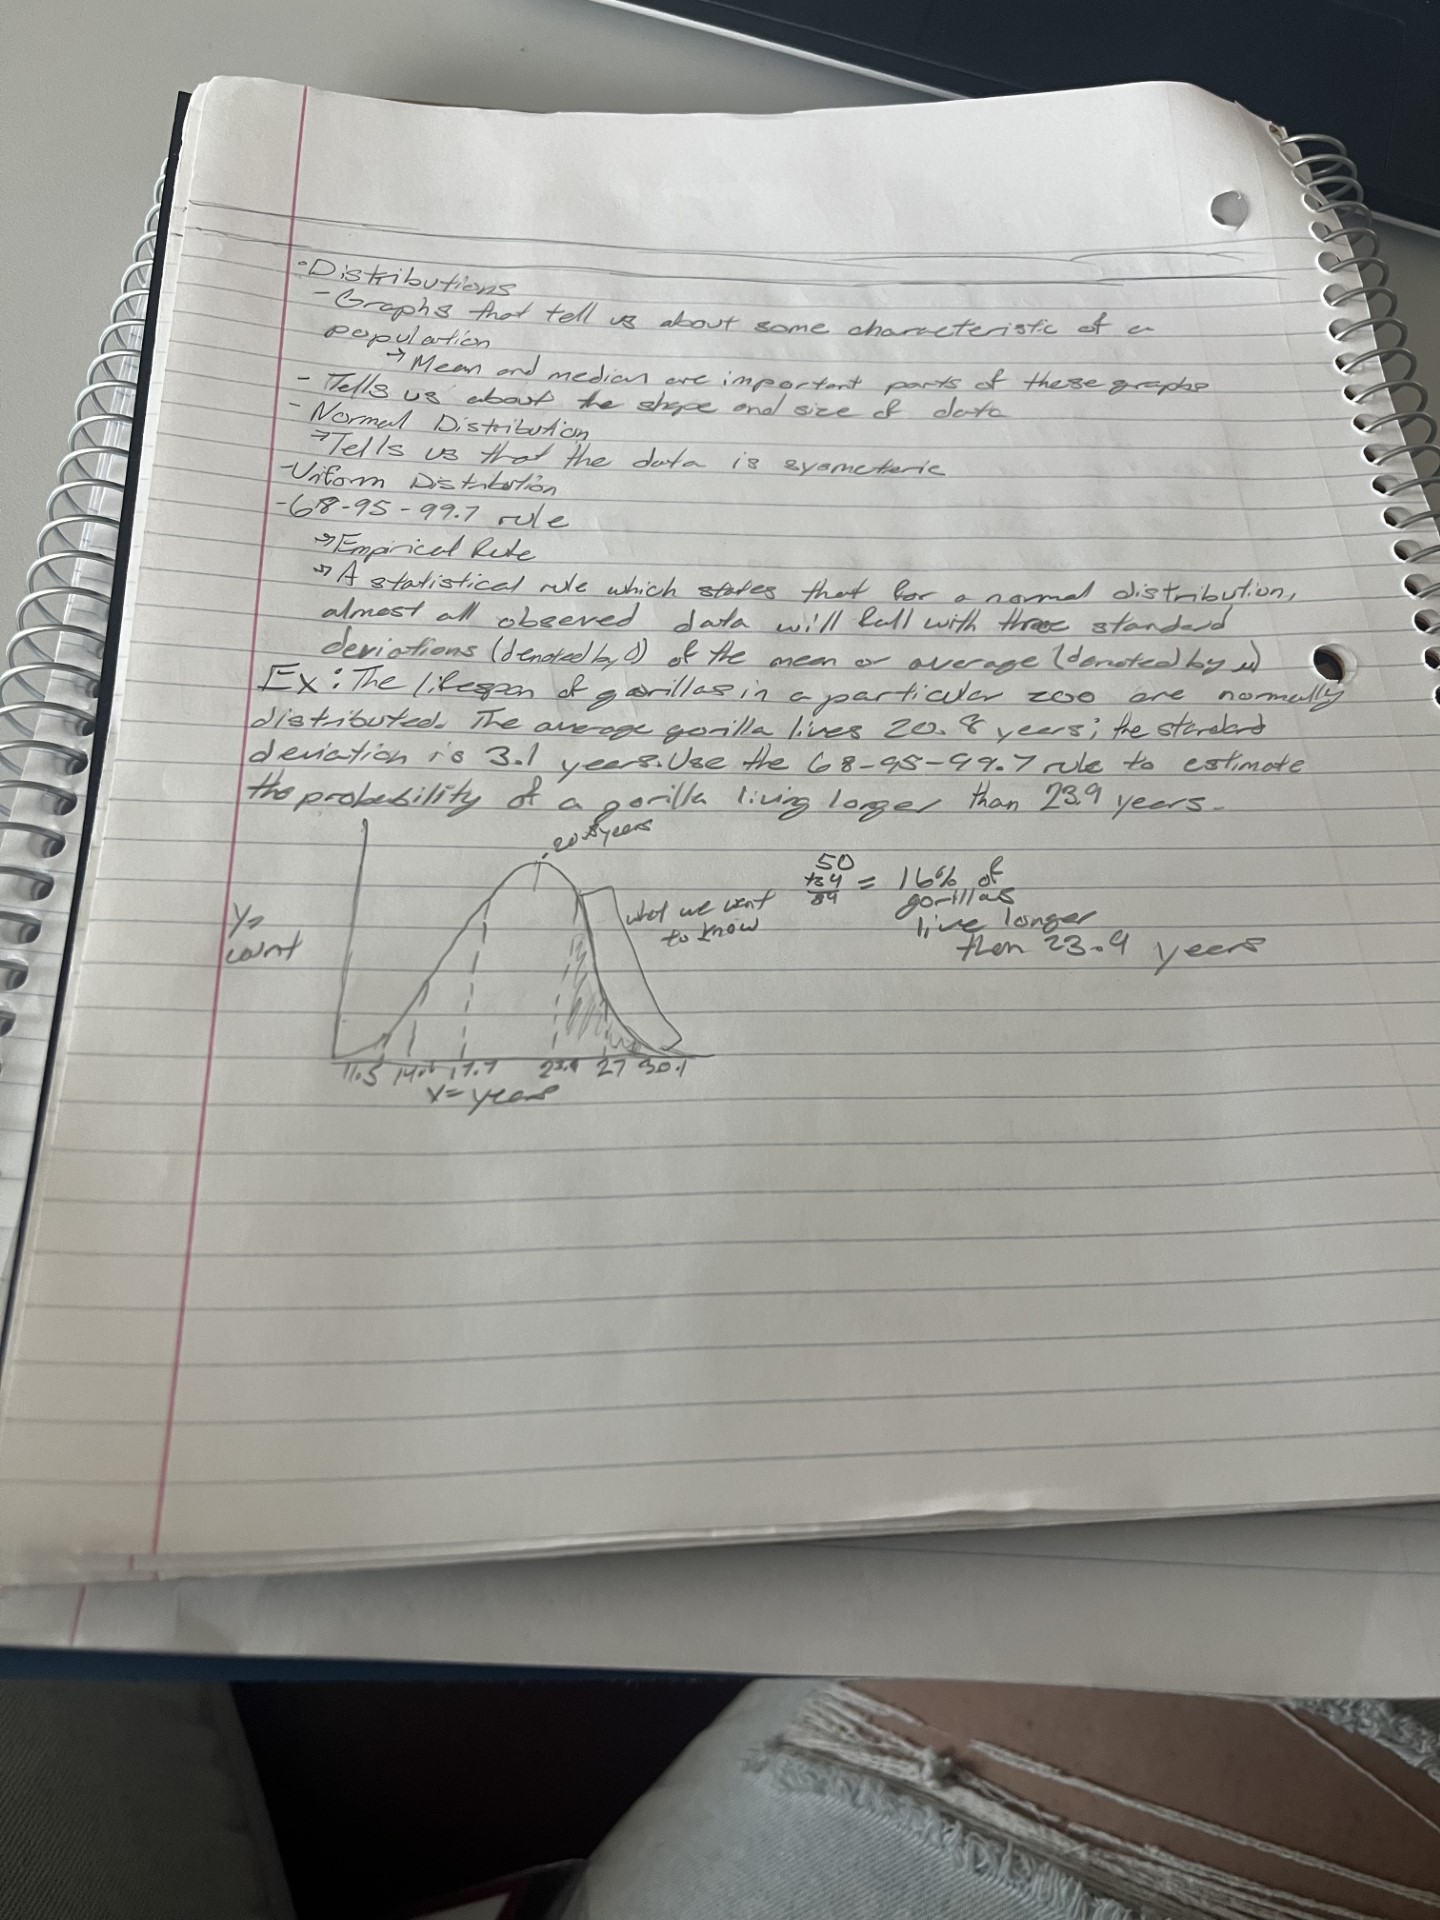 •Distributions
-Graphs that tell us about some characteristic of a
population
→Mean and median are important parts of these graphs
- Tells us about the shape and size of data
- Normal Distribution
→Tells us that the data is sysmeteric
-Uniform Distribution
-68-95-99.7 rule
→Empirical Rule
→A statistical rule which states that for a normal distribution,
almost all observed data will fall with three standard
deviations (denoted by σ) of the mean or average (denoted by μ)
Ex: The lifespan of gorillas in a particular zoo are normally
distributed. The average gorilla lives 20.8 years; the standard
deviation is 3.1 years. Use the 68-95-99.7 rule to estimate
the probability of a gorilla living longer than 23.9 years.
20.8 years
50
+34
84
= 16% of
gorillas
live longer
then 23.9 years
what we want
to know
y=
count
11.5 14.6 17.7 23.9 27 30.1
x= years